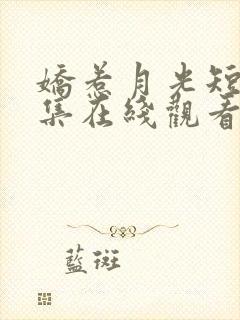 嬌惹月光短
集在綫觀看
藍斑